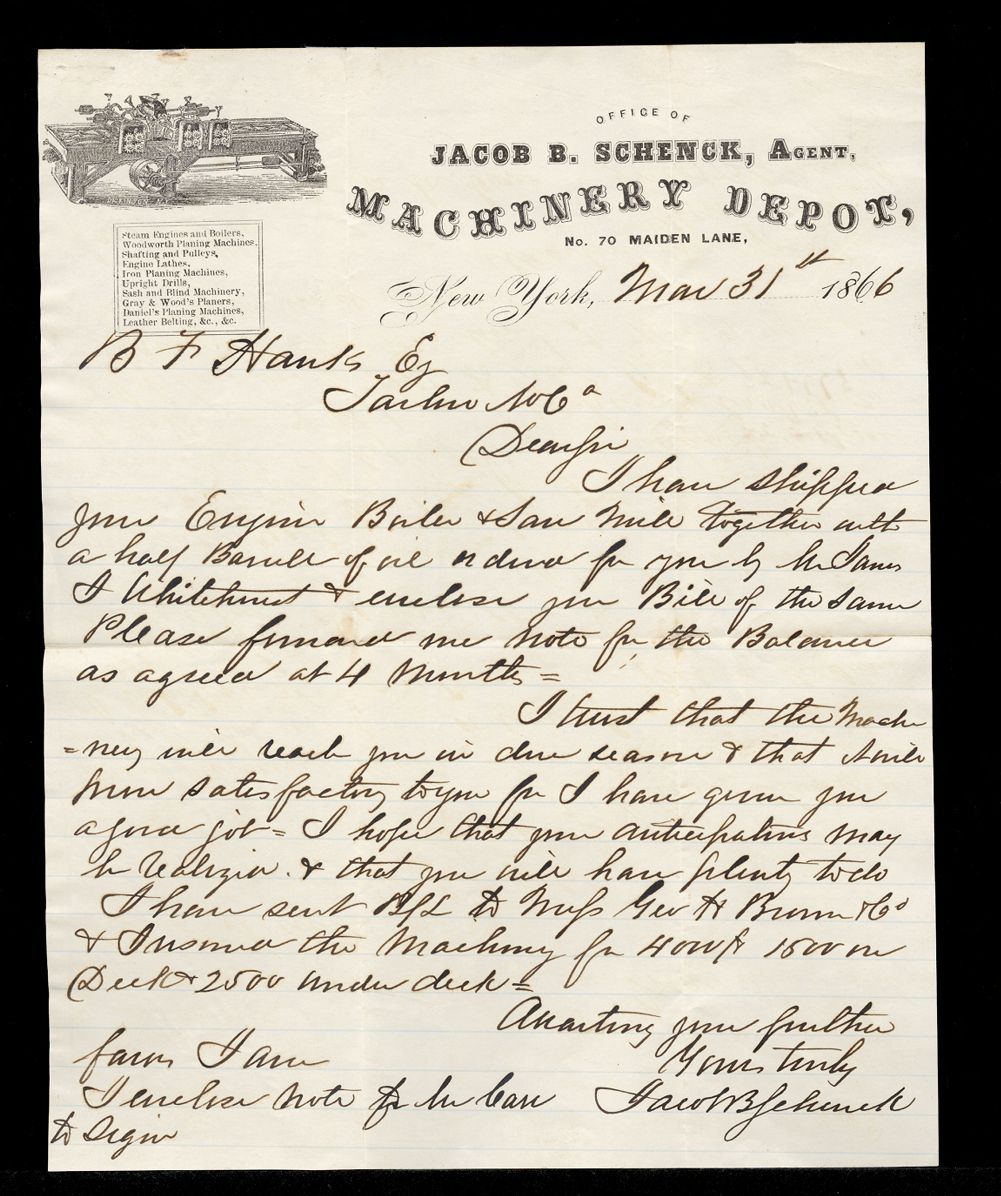 OFFICE OF
JACOB B. SCHENCK, AGENT,
MACHINERY DEPOT,
No. 70 MAIDEN LANE,
New York, Mar 31st 1866
Steam Engines and Boilers,
Woodworth Planing Machines,
Shafting and Pulleys,
Engine Lathes,
Iron Planing Machines,
Upright Drills,
Sash and Blind Machinery,
Gray & Wood's Planers,
Daniel's Planing Machines,
Leather Belting, &c., &c.
B F Hanks Eq
No Ca
Dear Sir
I have shipped
your Engine Boiler & Saw Mill together with
a half Barrell of oil ordered for you by Mr James
J Whitehurst & enclose you Bill of the same
Please forward me note for the Balance
as agreed at 4 Months =
I trust that the Mache
=nery will reach you in due season & that it will
prove satisfactory to you for I have given you
a good job = I hope that your anticipations may
be realized. & that you will have plenty to do
I have sent B/L to Mess Geo H Brown & Co
& Insured the Machinery for 4000$ 1500 on
Deck & 2500 under deck =
Awaiting your further
favors I am
Yours truly
I enclose note for Mr Carr
Jacob B Schenck
to sign